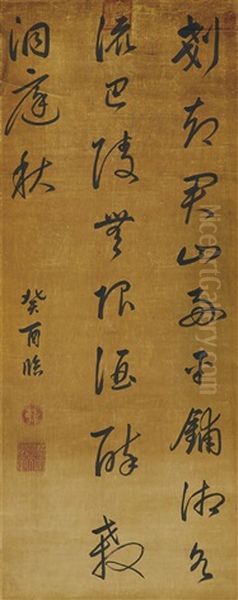 剗却君山好平鋪湘水
流巴陵無限酒醉殺
洞庭秋
癸酉臨
NiceArtGallery.com